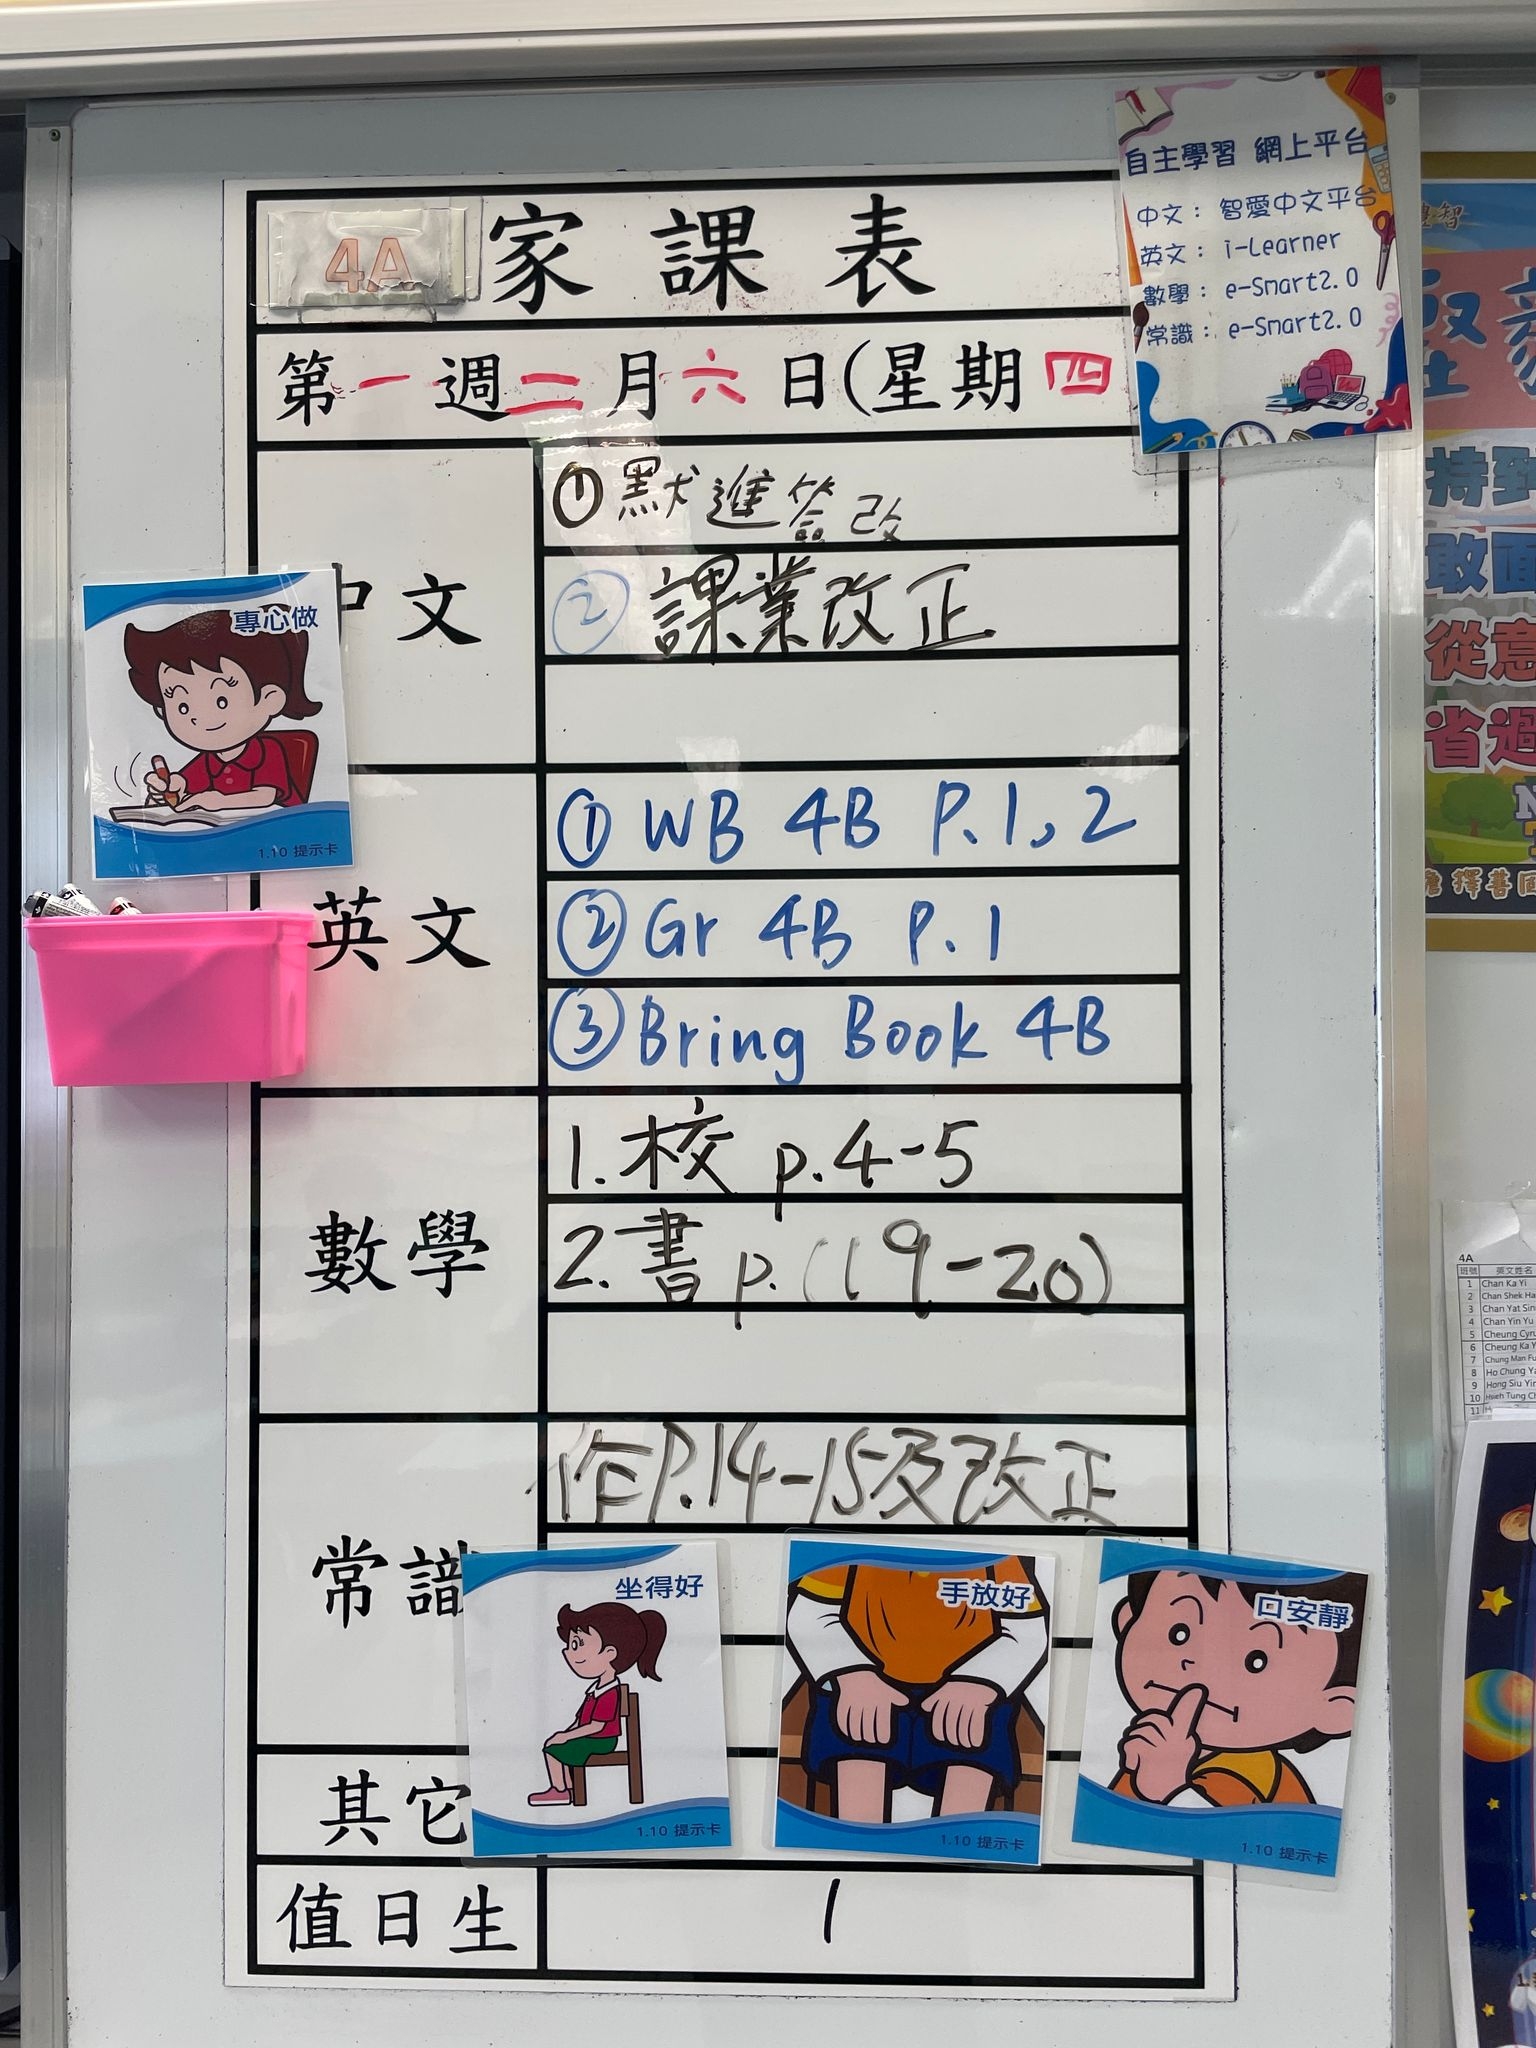 4A 家課表
第一週二月六日(星期四
自主學習 網上平台
中文： 智愛中文平台
英文： i-Learner
數學： e-Smart2.0
常識： e-Smart2.0
中文
① 默進簽改
② 課業改正
專心做
1.10 提示卡
英文
① WB 4B P.1,2
② Gr 4B P.1
③ Bring Book 4B
數學
1. 校 p.4-5
2. 書 p.(19-20)
常識
作P.14-15及改正
坐得好
1.10 提示卡
手放好
1.10 提示卡
口安靜
1.10 提示卡
其它
值日生
1
持
敢面
從意
省過
擇善
4A
班號 英文姓名
1 Chan Ka Yi
2 Chan Shek Ha
3 Chan Yat Sin
4 Chan Yin Yu
5 Cheung Cyru
6 Cheung Ka Y
7 Chung Man Fu
8 Ho Chung Ya
9 Hong Siu Yin
10 Hsieh Tung Ch
11